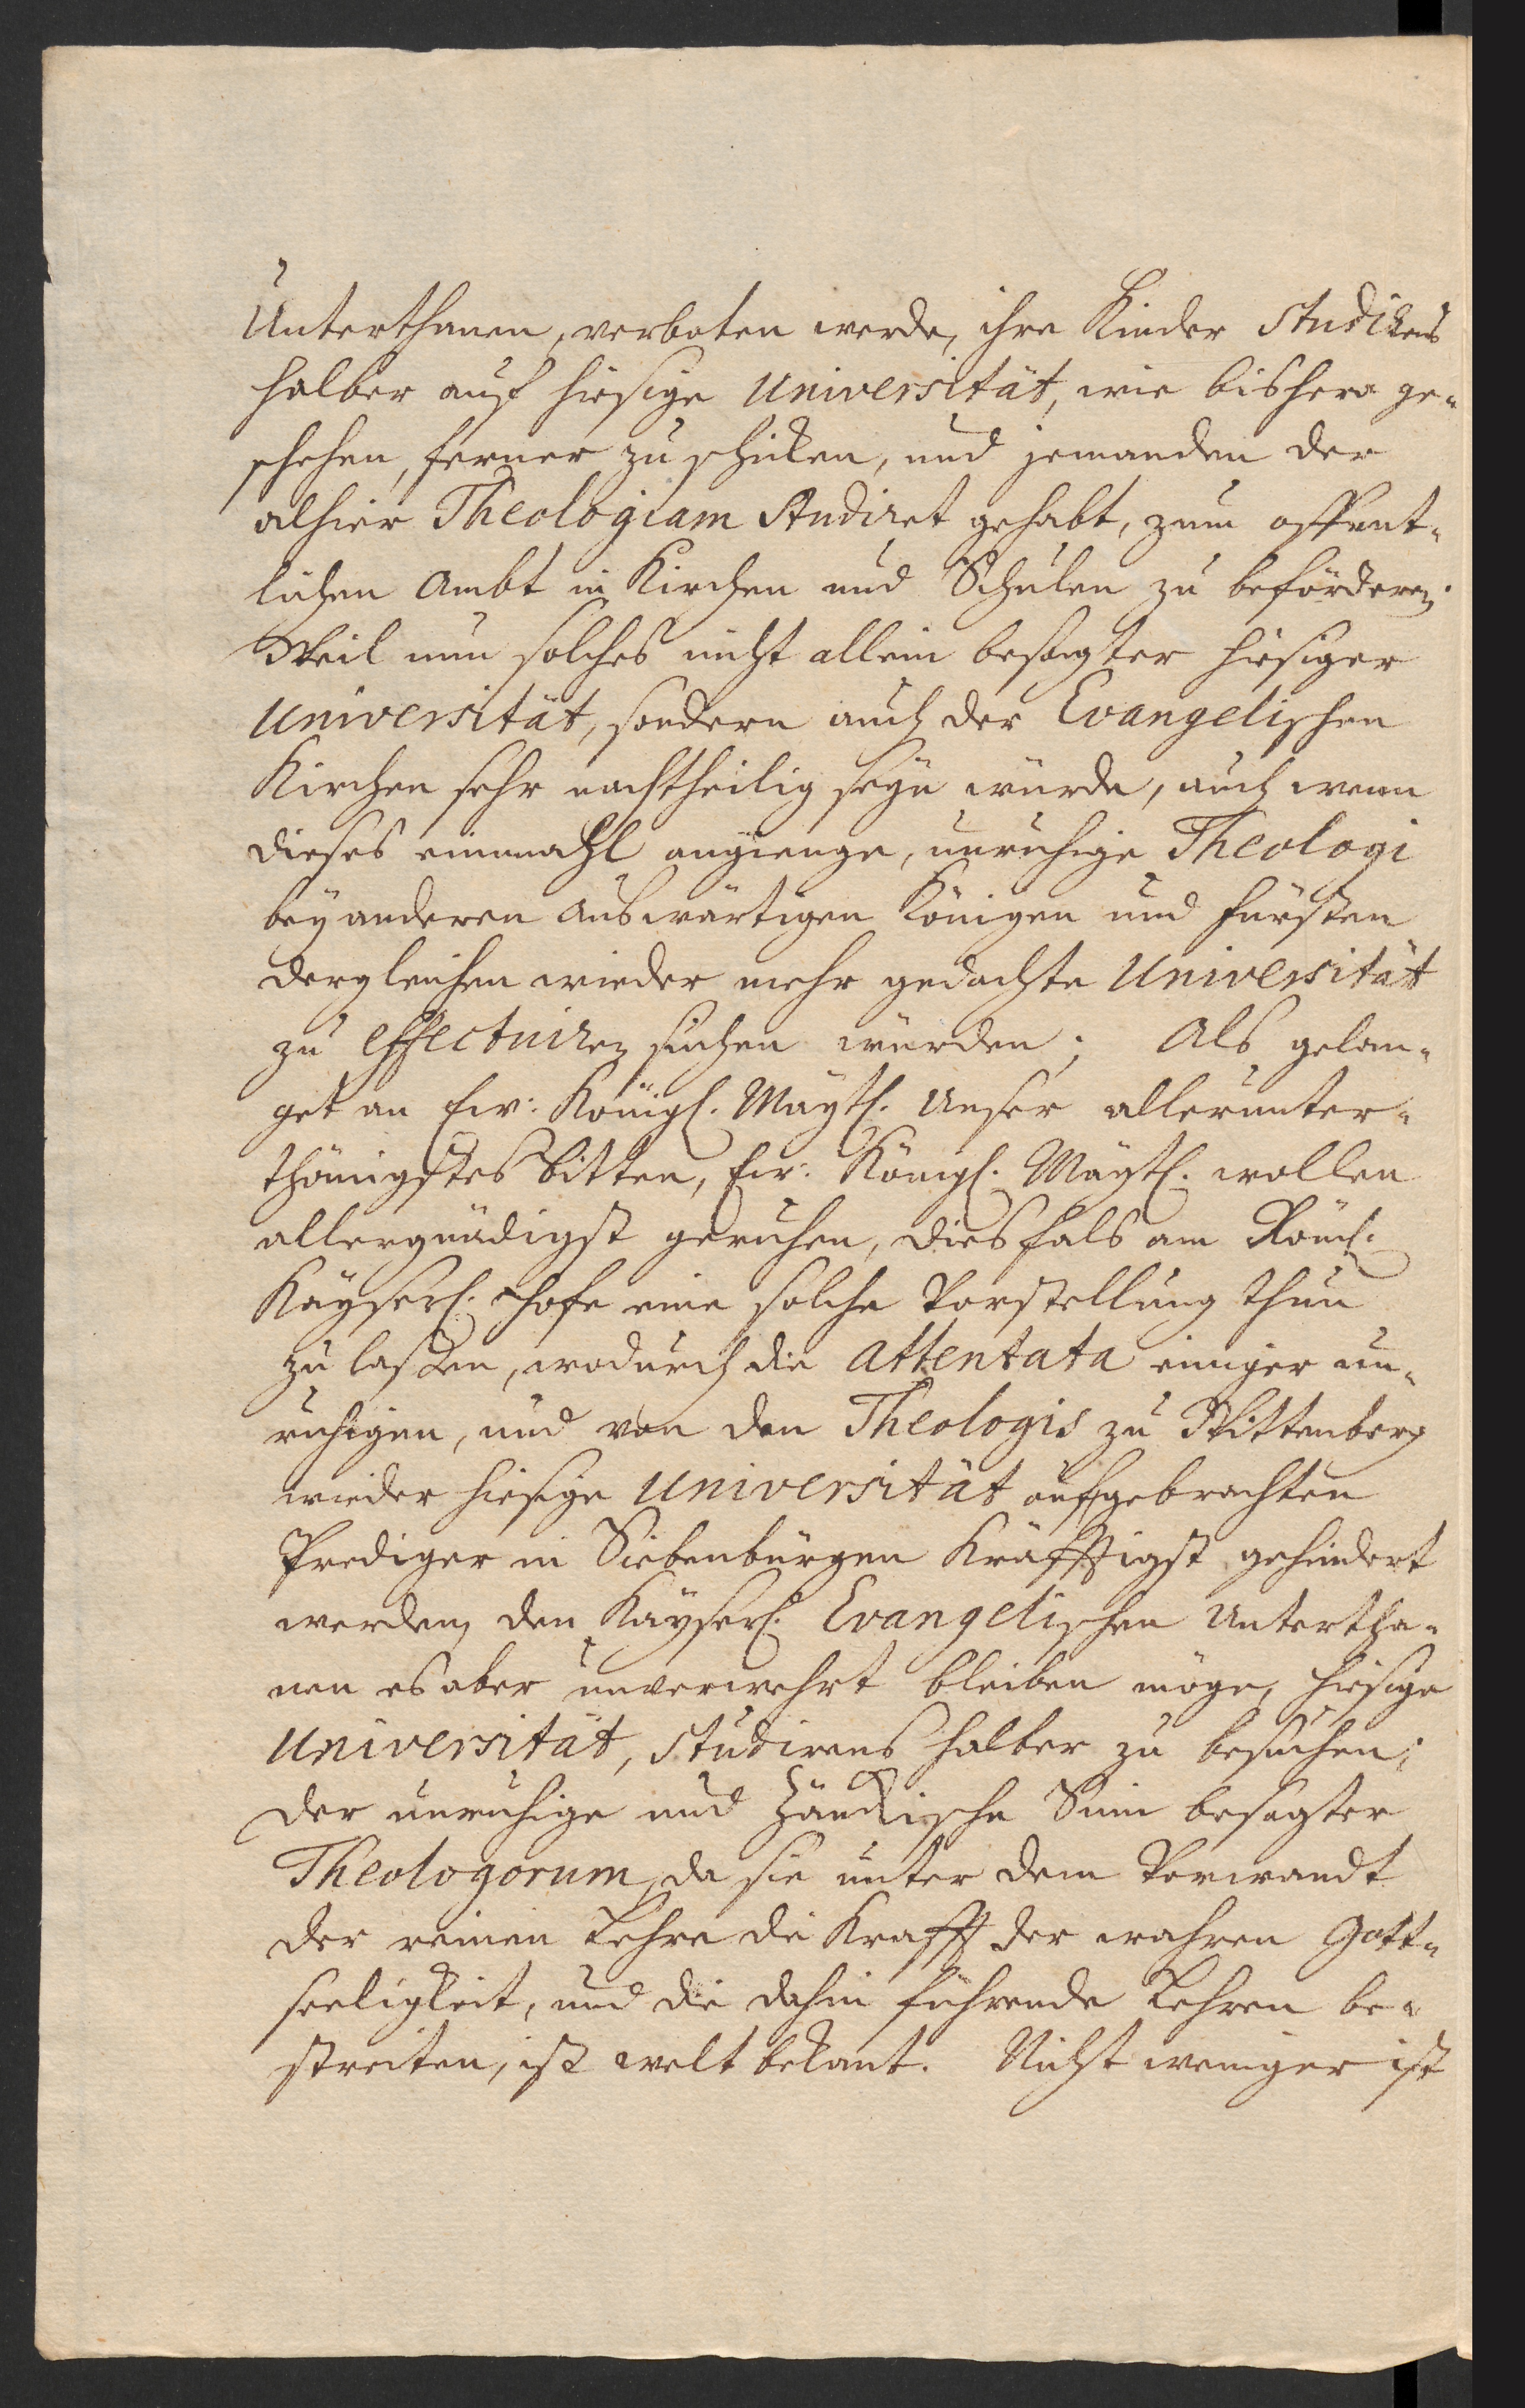 Unterthanen, verboten werde, ihre Kinder Studirens
halber auf hiesige Universität, wie bishero ge-
schehen, ferner zu schicken, und jemanden der
alhier Theologiam Studiret gehabt, zum offent-
lichen Ambt in Kirchen und Schulen zu beförderen.
Weil nun solches nicht allein besagter hiesiger
Universität, sondern auch der Evangelischen
Kirchen sehr nachtheilig seyn würde, auch wenn
dieses einmahl angienge, unruhige Theologi
bey anderen auswärtigen Königen und Fürsten
dergleichen wieder mehr gedachte Universität
zu effectuiren suchen würden; Als gelan-
get an Ew: Königl. Maytt. Unser allerunter-
thänigstes bitten, Ew: Königl. Maytt. wollen
allergnädigst geruhen, diesfals am Röm:
Kayserl. Hofe eine solche Vorstellung thun
zu laßen, wodurch die attentata einiger un-
ruhigen, und von den Theologis zu Wittenberg
wieder hiesige Universität aufgebrachten
Prediger in Siebenbürgen kräfftigst gehindert
werden, den Kayserl. Evangelischen Untertha-
nen es aber unverwehrt bleiben möge, hiesige
Universität, studirens halber zu besuchen;
Der unruhige und Zänckische Sinn besagter
Theologorum, da sie unter dem Vorwandt
der reinen Lehre die Krafft der wahren Gott-
seeligkeit, und die dahin führende Lehren be-
streiten, ist welt bekant. Nicht weniger ist